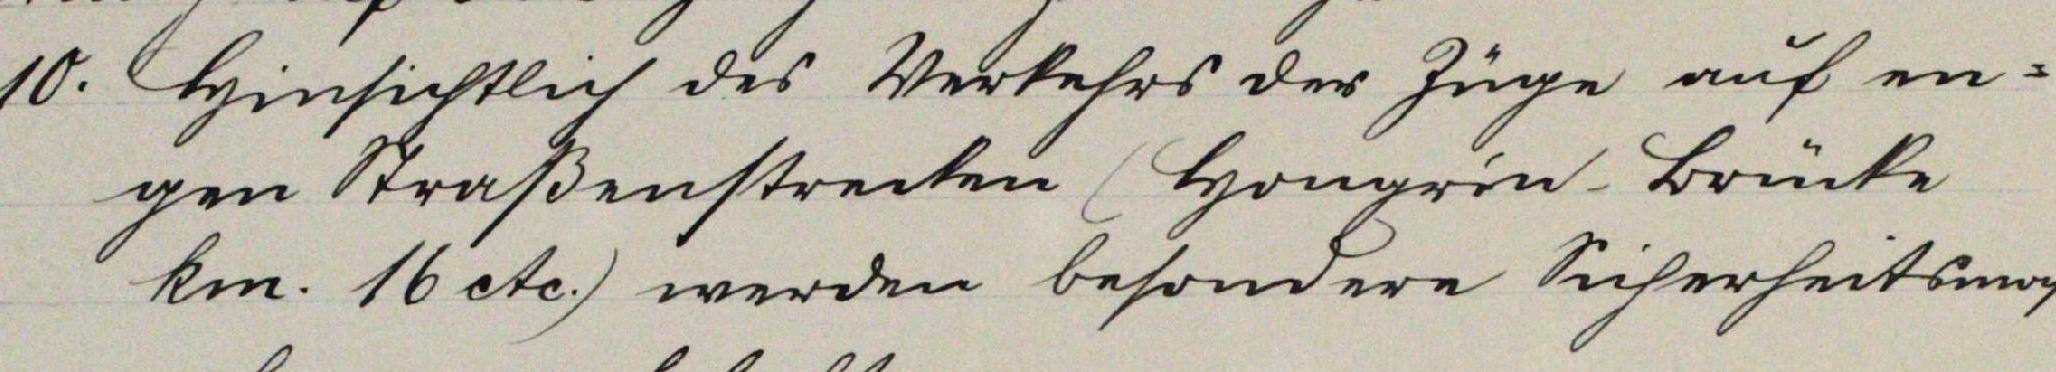 10. Hinsichtlich des Verkehrs der Züge auf en=
gen Straßenstrecken (Hongrin-Brücke
km. 16 etc.) werden besondere Sicherheitsmaß